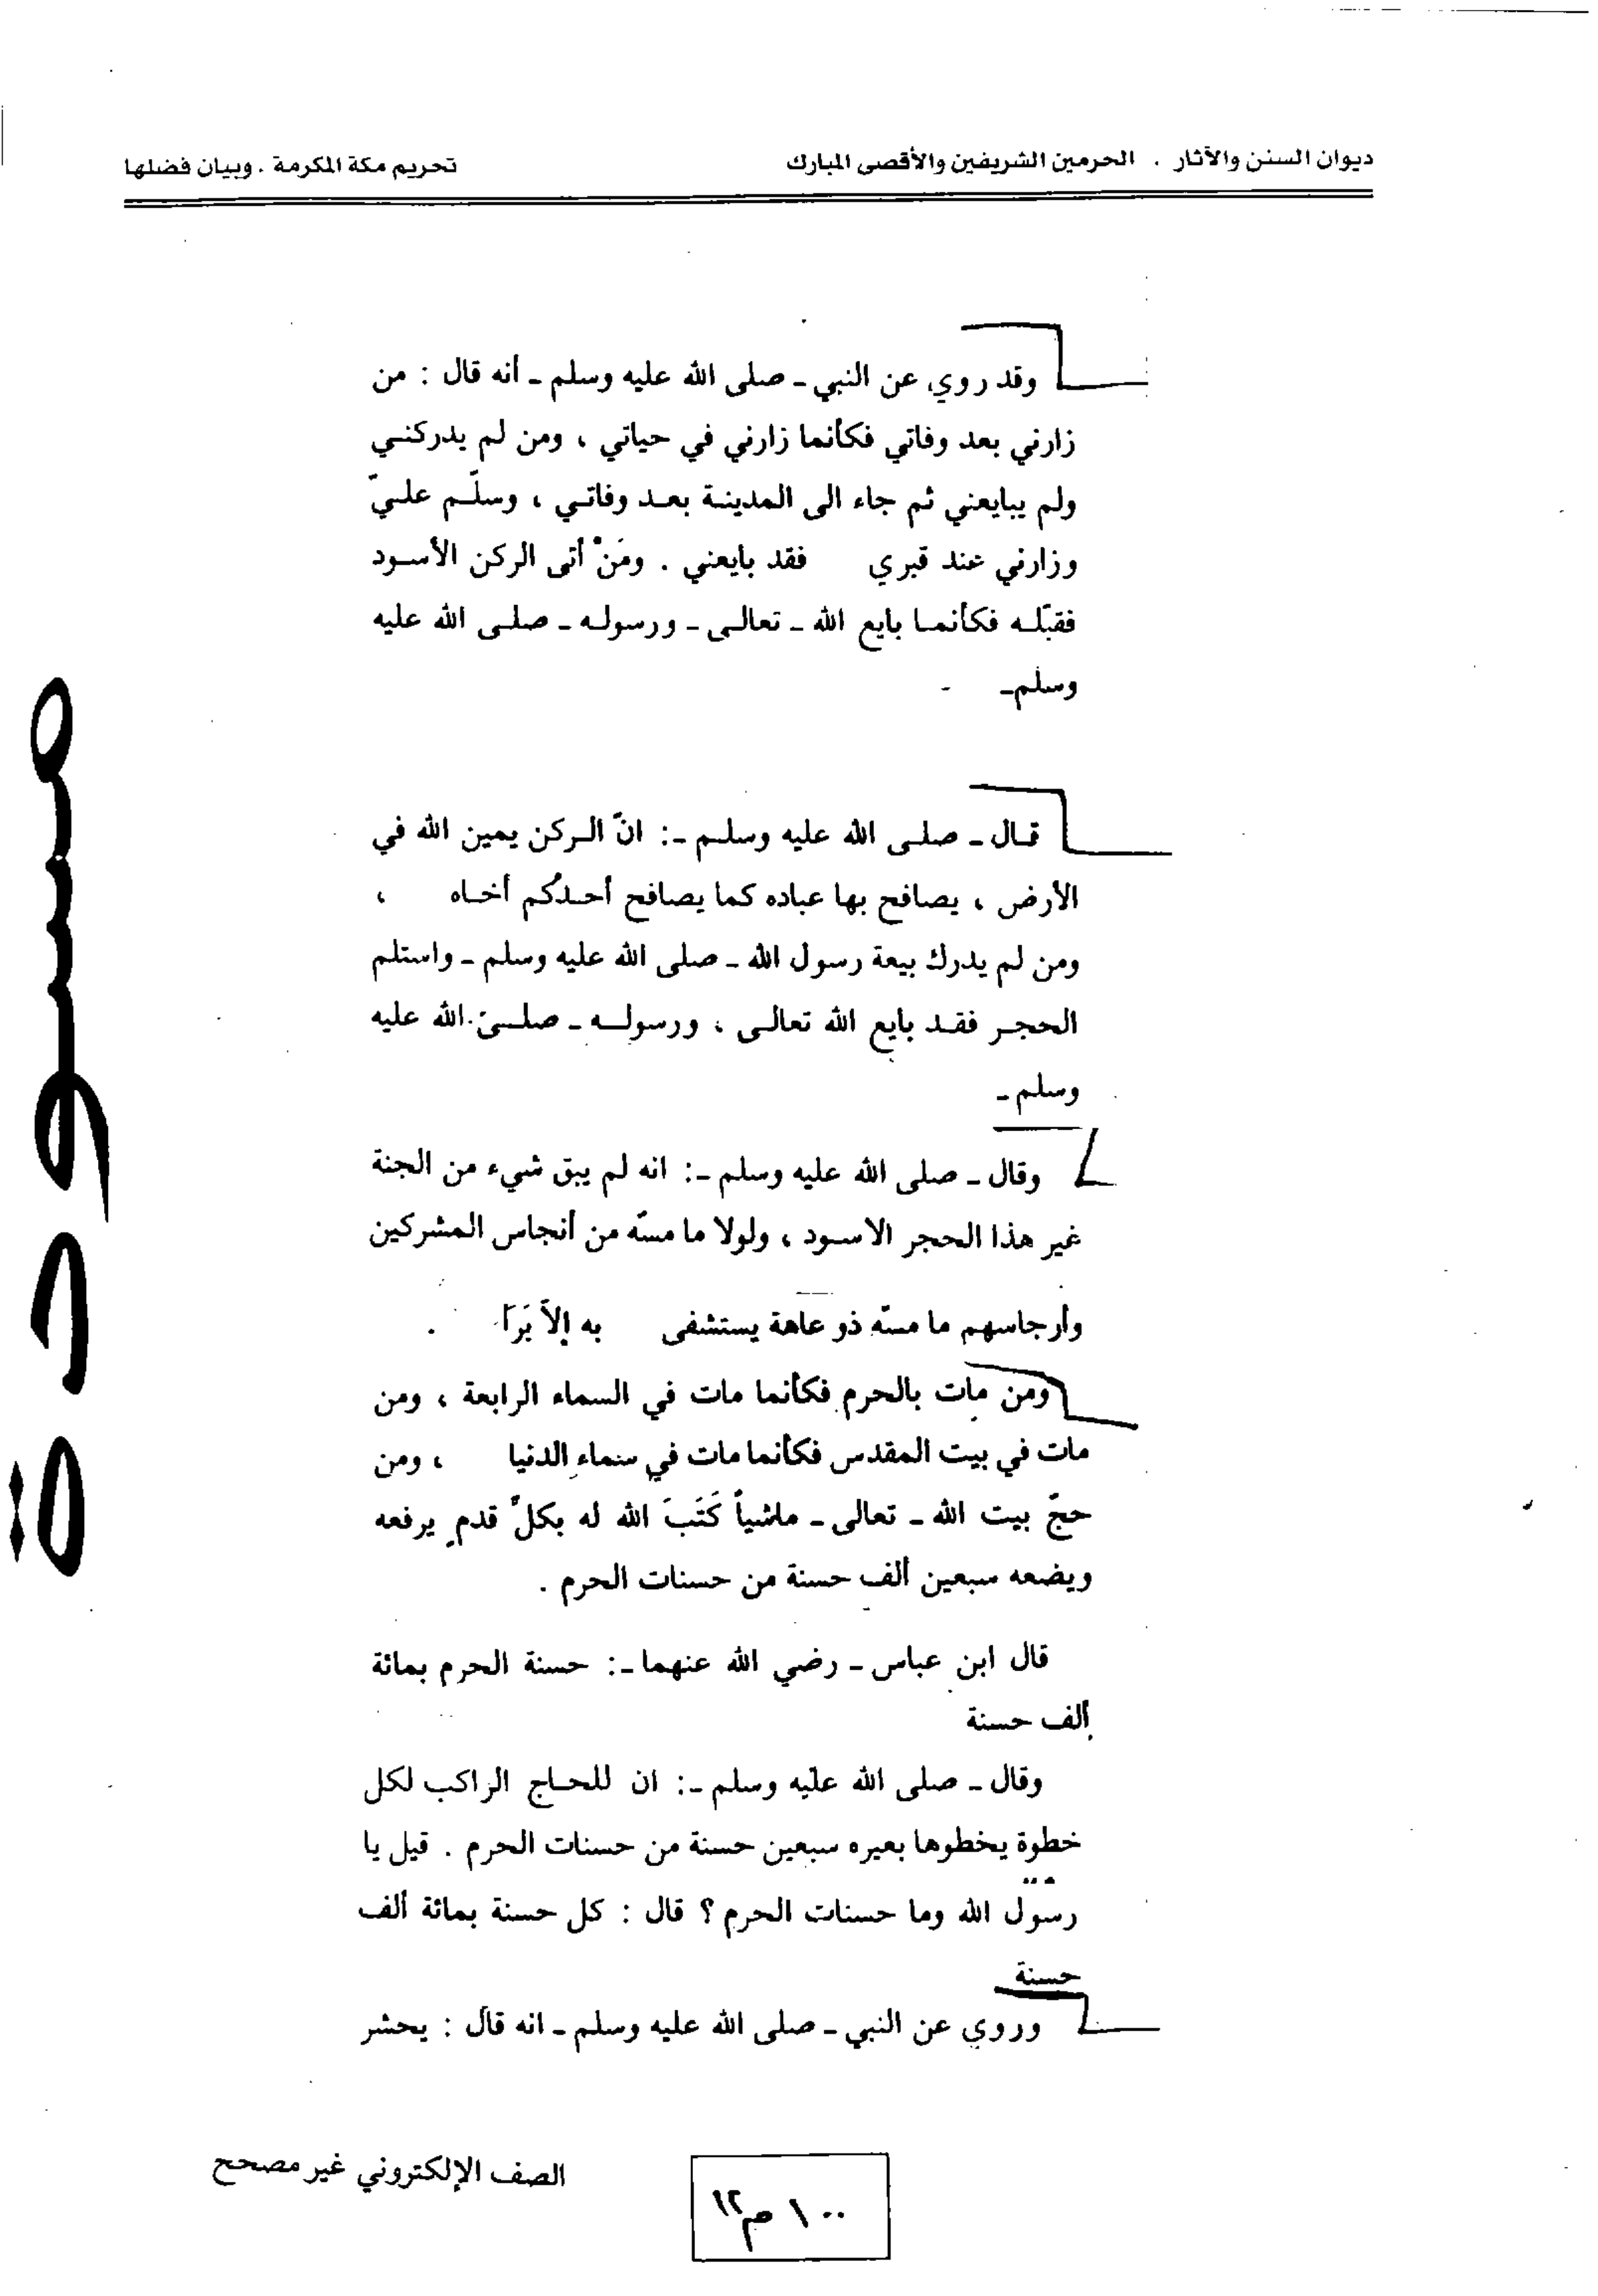 ديوان السنن والآثار . الحرمين الشريفين والأقصى المبارك
تحريم مكة المكرمة . وبيان فضلها
وقد روي عن النبي ـ صلى الله عليه وسلم ـ أنه قال : من
زارني بعد وفاتي فكأنما زارني في حياتي ، ومن لم يدركني
ولم يبايعني ثم جاء الى المدينة بعد وفاتي ، وسلّم عليّ
وزارني عند قبري فقد بايعني . ومَنْ أتى الركن الأسود
فقبّله فكأنما بايع الله ـ تعالى ـ ورسوله ـ صلى الله عليه
وسلم ـ
قال ـ صلى الله عليه وسلم ـ: انّ الركن يمين الله في
الأرض ، يصافح بها عباده كما يصافح أحدُكم أخاه ،
ومن لم يدرك بيعة رسول الله ـ صلى الله عليه وسلم ـ واستلم
الحجر فقد بايع الله تعالى ، ورسوله ـ صلى الله عليه
وسلم ـ
وقال ـ صلى الله عليه وسلم ـ: انه لم يبق شيء من الجنة
غير هذا الحجر الاسود ، ولولا ما مسّه من أنجاس المشركين
وأرجاسهم ما مسّه ذو عاهة يستشفى به إلاّ بَرَأ .
ومن مات بالحرم فكأنما مات في السماء الرابعة ، ومن
مات في بيت المقدس فكأنما مات في سماء الدنيا ، ومن
حجّ بيت الله ـ تعالى ـ ماشياً كَتَبَ الله له بكلّ قدم يرفعه
ويضعه سبعين ألف حسنة من حسنات الحرم .
قال ابن عباس ـ رضي الله عنهما ـ: حسنة الحرم بمائة
ألف حسنة
وقال ـ صلى الله عليه وسلم ـ: ان للحاج الراكب لكل
خطوة يخطوها بعيره سبعين حسنة من حسنات الحرم . قيل يا
رسول الله وما حسنات الحرم ؟ قال : كل حسنة بمائة ألف
حسنة
وروي عن النبي ـ صلى الله عليه وسلم ـ انه قال : يحشر
مسودة
الصف الإلكتروني غير مصحح
١٠٠ م١٢